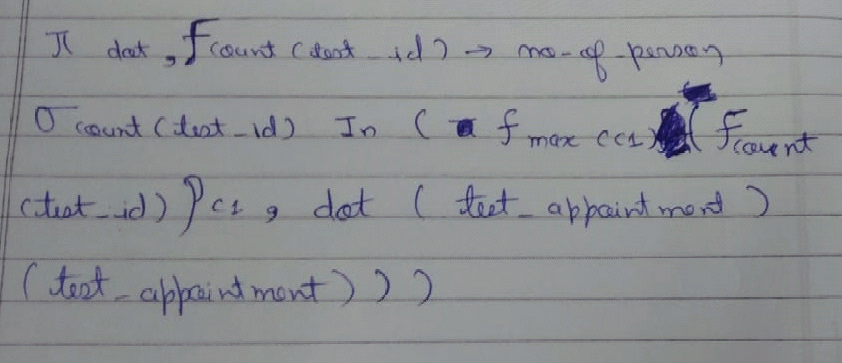 π dat, Fcount (test_id) → no-of-person
σ count (test_id) In ( f max (c1) ( Fcount
(test_id) ρ c1, dat ( test_appointment )
(test_appointment) ) )